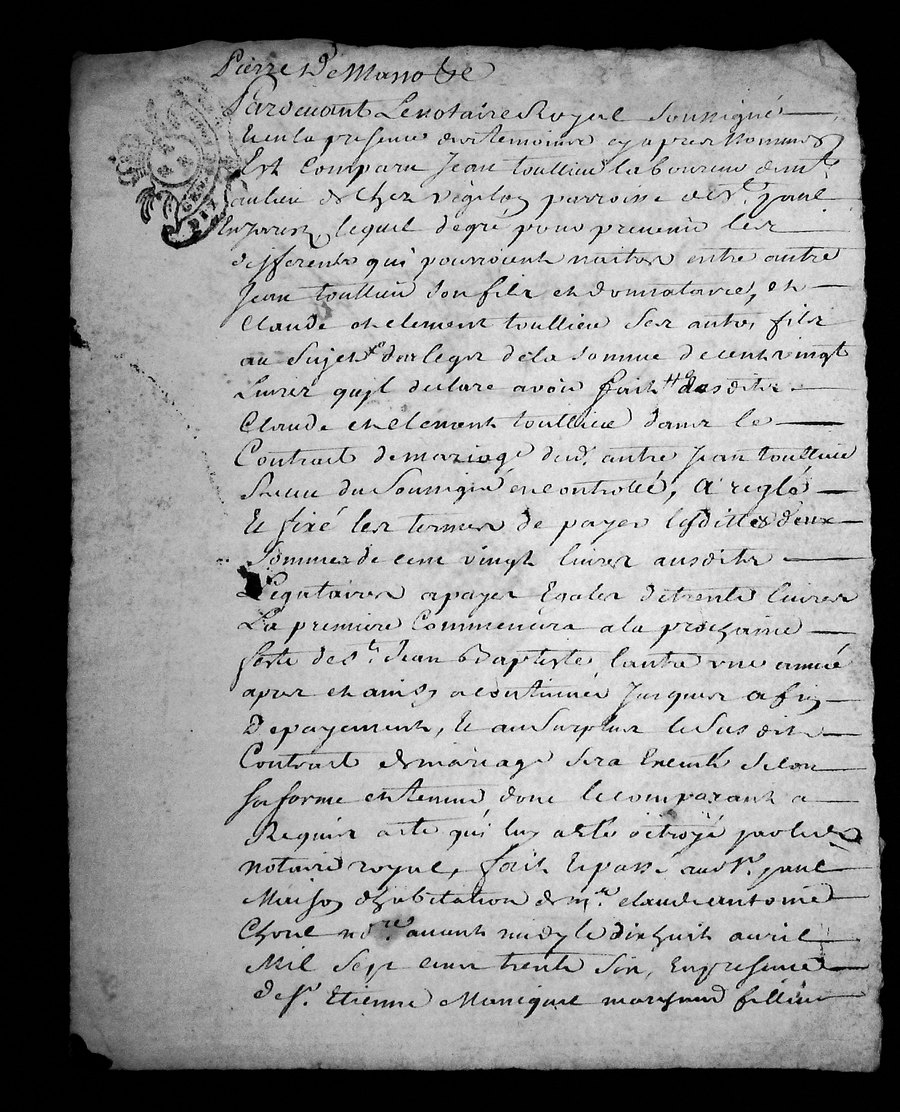 Pierre De
GEN
DIX
Pardevant Le notaire Royal Soussigné
Et en la presence des temoins cy apres Nommes
Est Comparu Jean toullieu laboureur demt.
au lieu de Chez paroisse de St. paul
En Jarest, lequel de gré pour prevenir les
differents qui pourroient naitre entre autre
Jean toullieu son fils et donnataire, et
Claude et clement toullieu ses autres fils
au Sujet des legs de la somme de cent vingt
Livres qu'il declare avoir fait ausdits
Claude et clement toullieu dans le
Contrat de mariage dud. autre Jean toullieu
Receu du Soussigné et controllé, A reglé
Et fixé les termes de payer lesdittes deux
Sommes de cent vingt livres ausdits
Legataires a payes Egales de trente livres
La premiere Commencera a la prochaine
feste de St. Jean Baptiste l'autre une année
apres et ainsy a continuer Jusques a fin
De payement, Et au Surplus le Susdit
Contrat de mariage sera Executé selon
sa forme et teneur dont le comparant a
Requis acte qui luy a esté octroyé par led.
notaire royal, fait Et passé aud St. paul
Maison d'habitation de mre. claude antoine
nore. avant midy le dixhuit avril
Mil Sept cent trente Six, En presence
de Sr. Etienne marchand